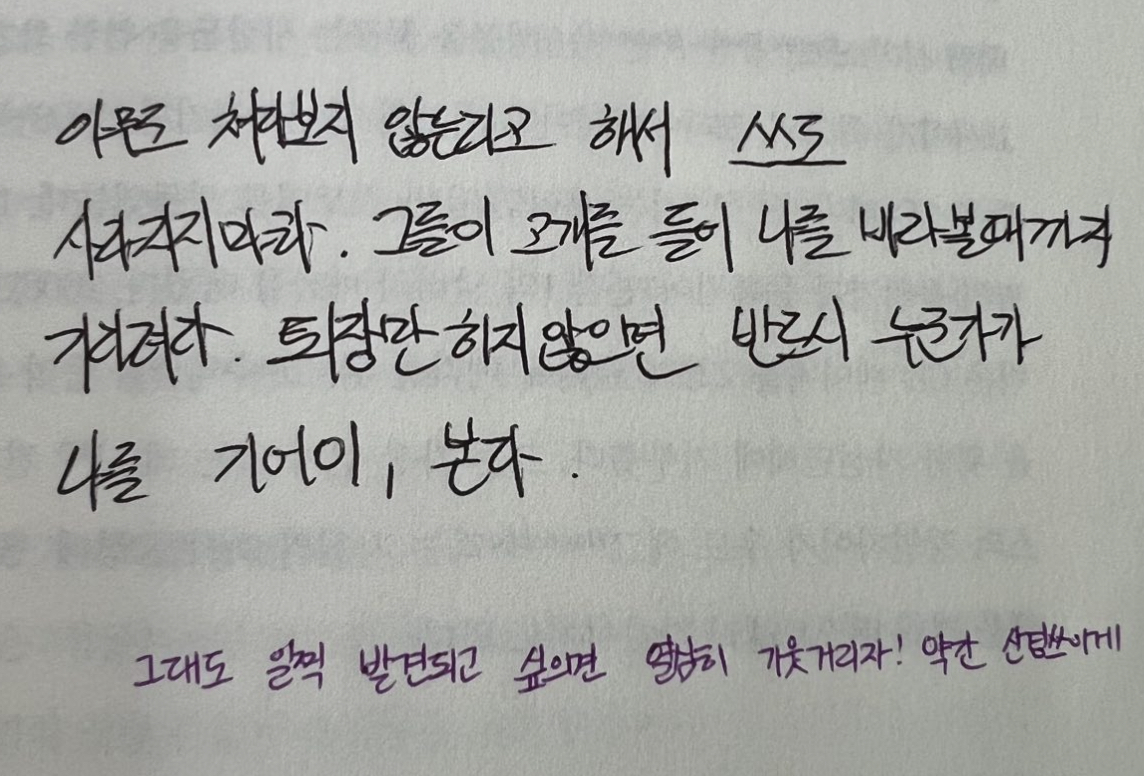 아무도 쳐다보지 않는다고 해서 스스로
사라지지 마라. 그들이 고개를 들어 나를 바라볼때까지
기다려라. 퇴장만 하지 않으면 반드시 누군가가
나를 기어이, 본다.
그래도 일찍 발견되고 싶으면 열심히 기웃거리자! 약간